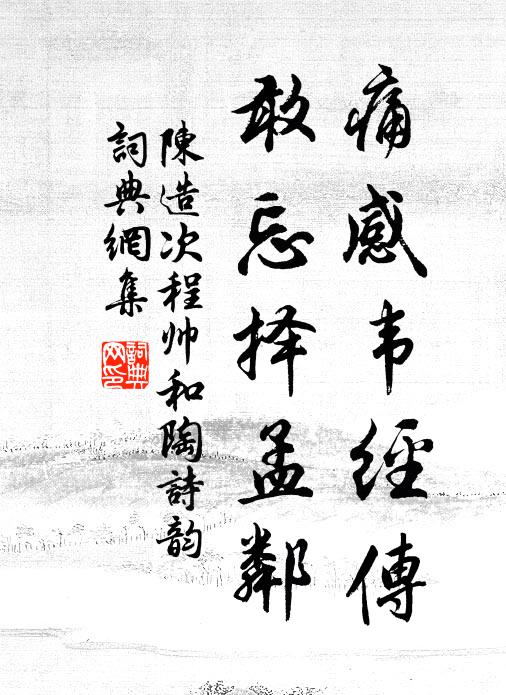 痛感韦經傳
敢忘择孟鄰
陳造次程帅和陶詩韵
詞典網集
詞典
网印